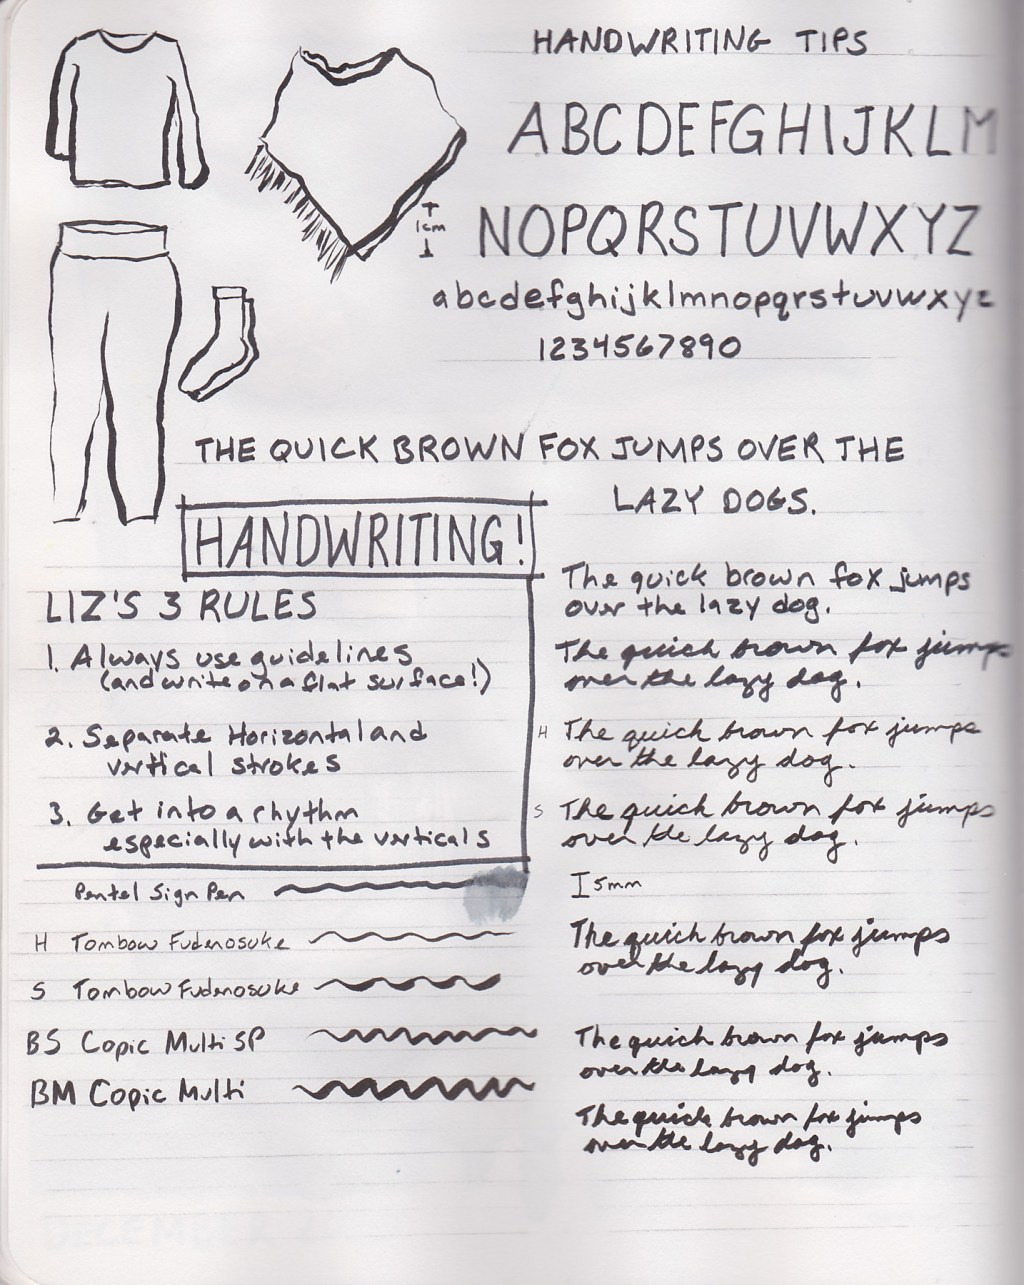 HANDWRITING TIPS
ABCDEFGHIJKLM
1cm
NOPQRSTUVWXYZ
abcdefghijklmnopqrstuvwxyz
1234567890
THE QUICK BROWN FOX JUMPS OVER THE
LAZY DOGS.
HANDWRITING!
LIZ'S 3 RULES
1. Always use guidelines
(and write on a flat surface!)
2. Separate Horizontal and
vertical strokes
3. Get into a rhythm
especially with the verticals
Pentel Sign Pen
H Tombow Fudenosuke
S Tombow Fudenosuke
BS Copic Multi SP
BM Copic Multi
The quick brown fox jumps
over the lazy dog.
The quick brown fox jumps
over the lazy dog.
H The quick brown fox jumps
over the lazy dog.
S The quick brown fox jumps
over the lazy dog.
5mm
The quick brown fox jumps
over the lazy dog.
The quick brown fox jumps
over the lazy dog.
The quick brown fox jumps
over the lazy dog.